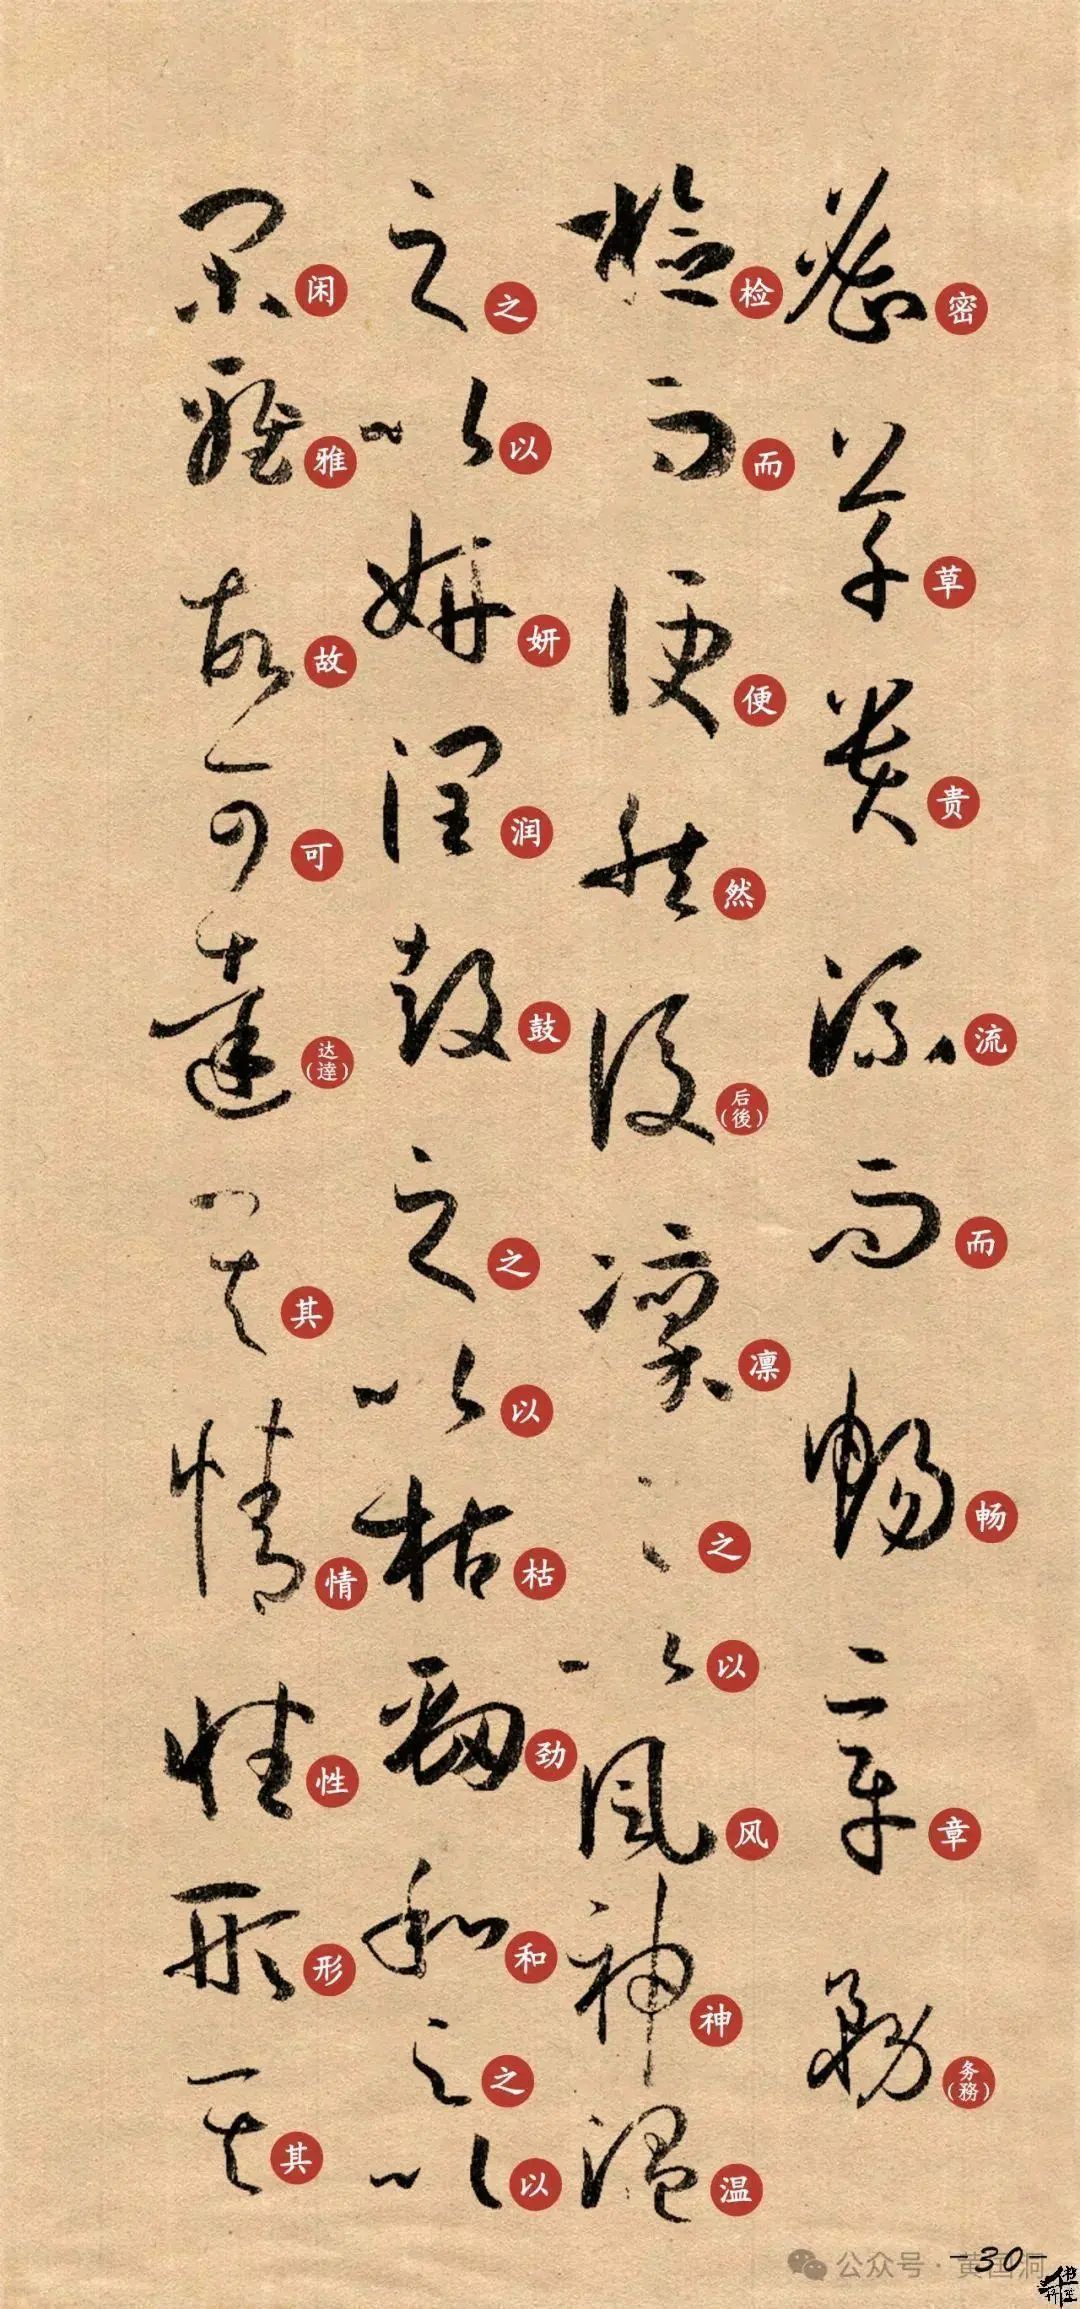 密草贵流而畅章务(務)
检而便然后(後)凛之以风神温
之以妍润鼓之以枯劲和之以
闲雅故可达(逹)其情性形其
-30-
公众号·黄国洞